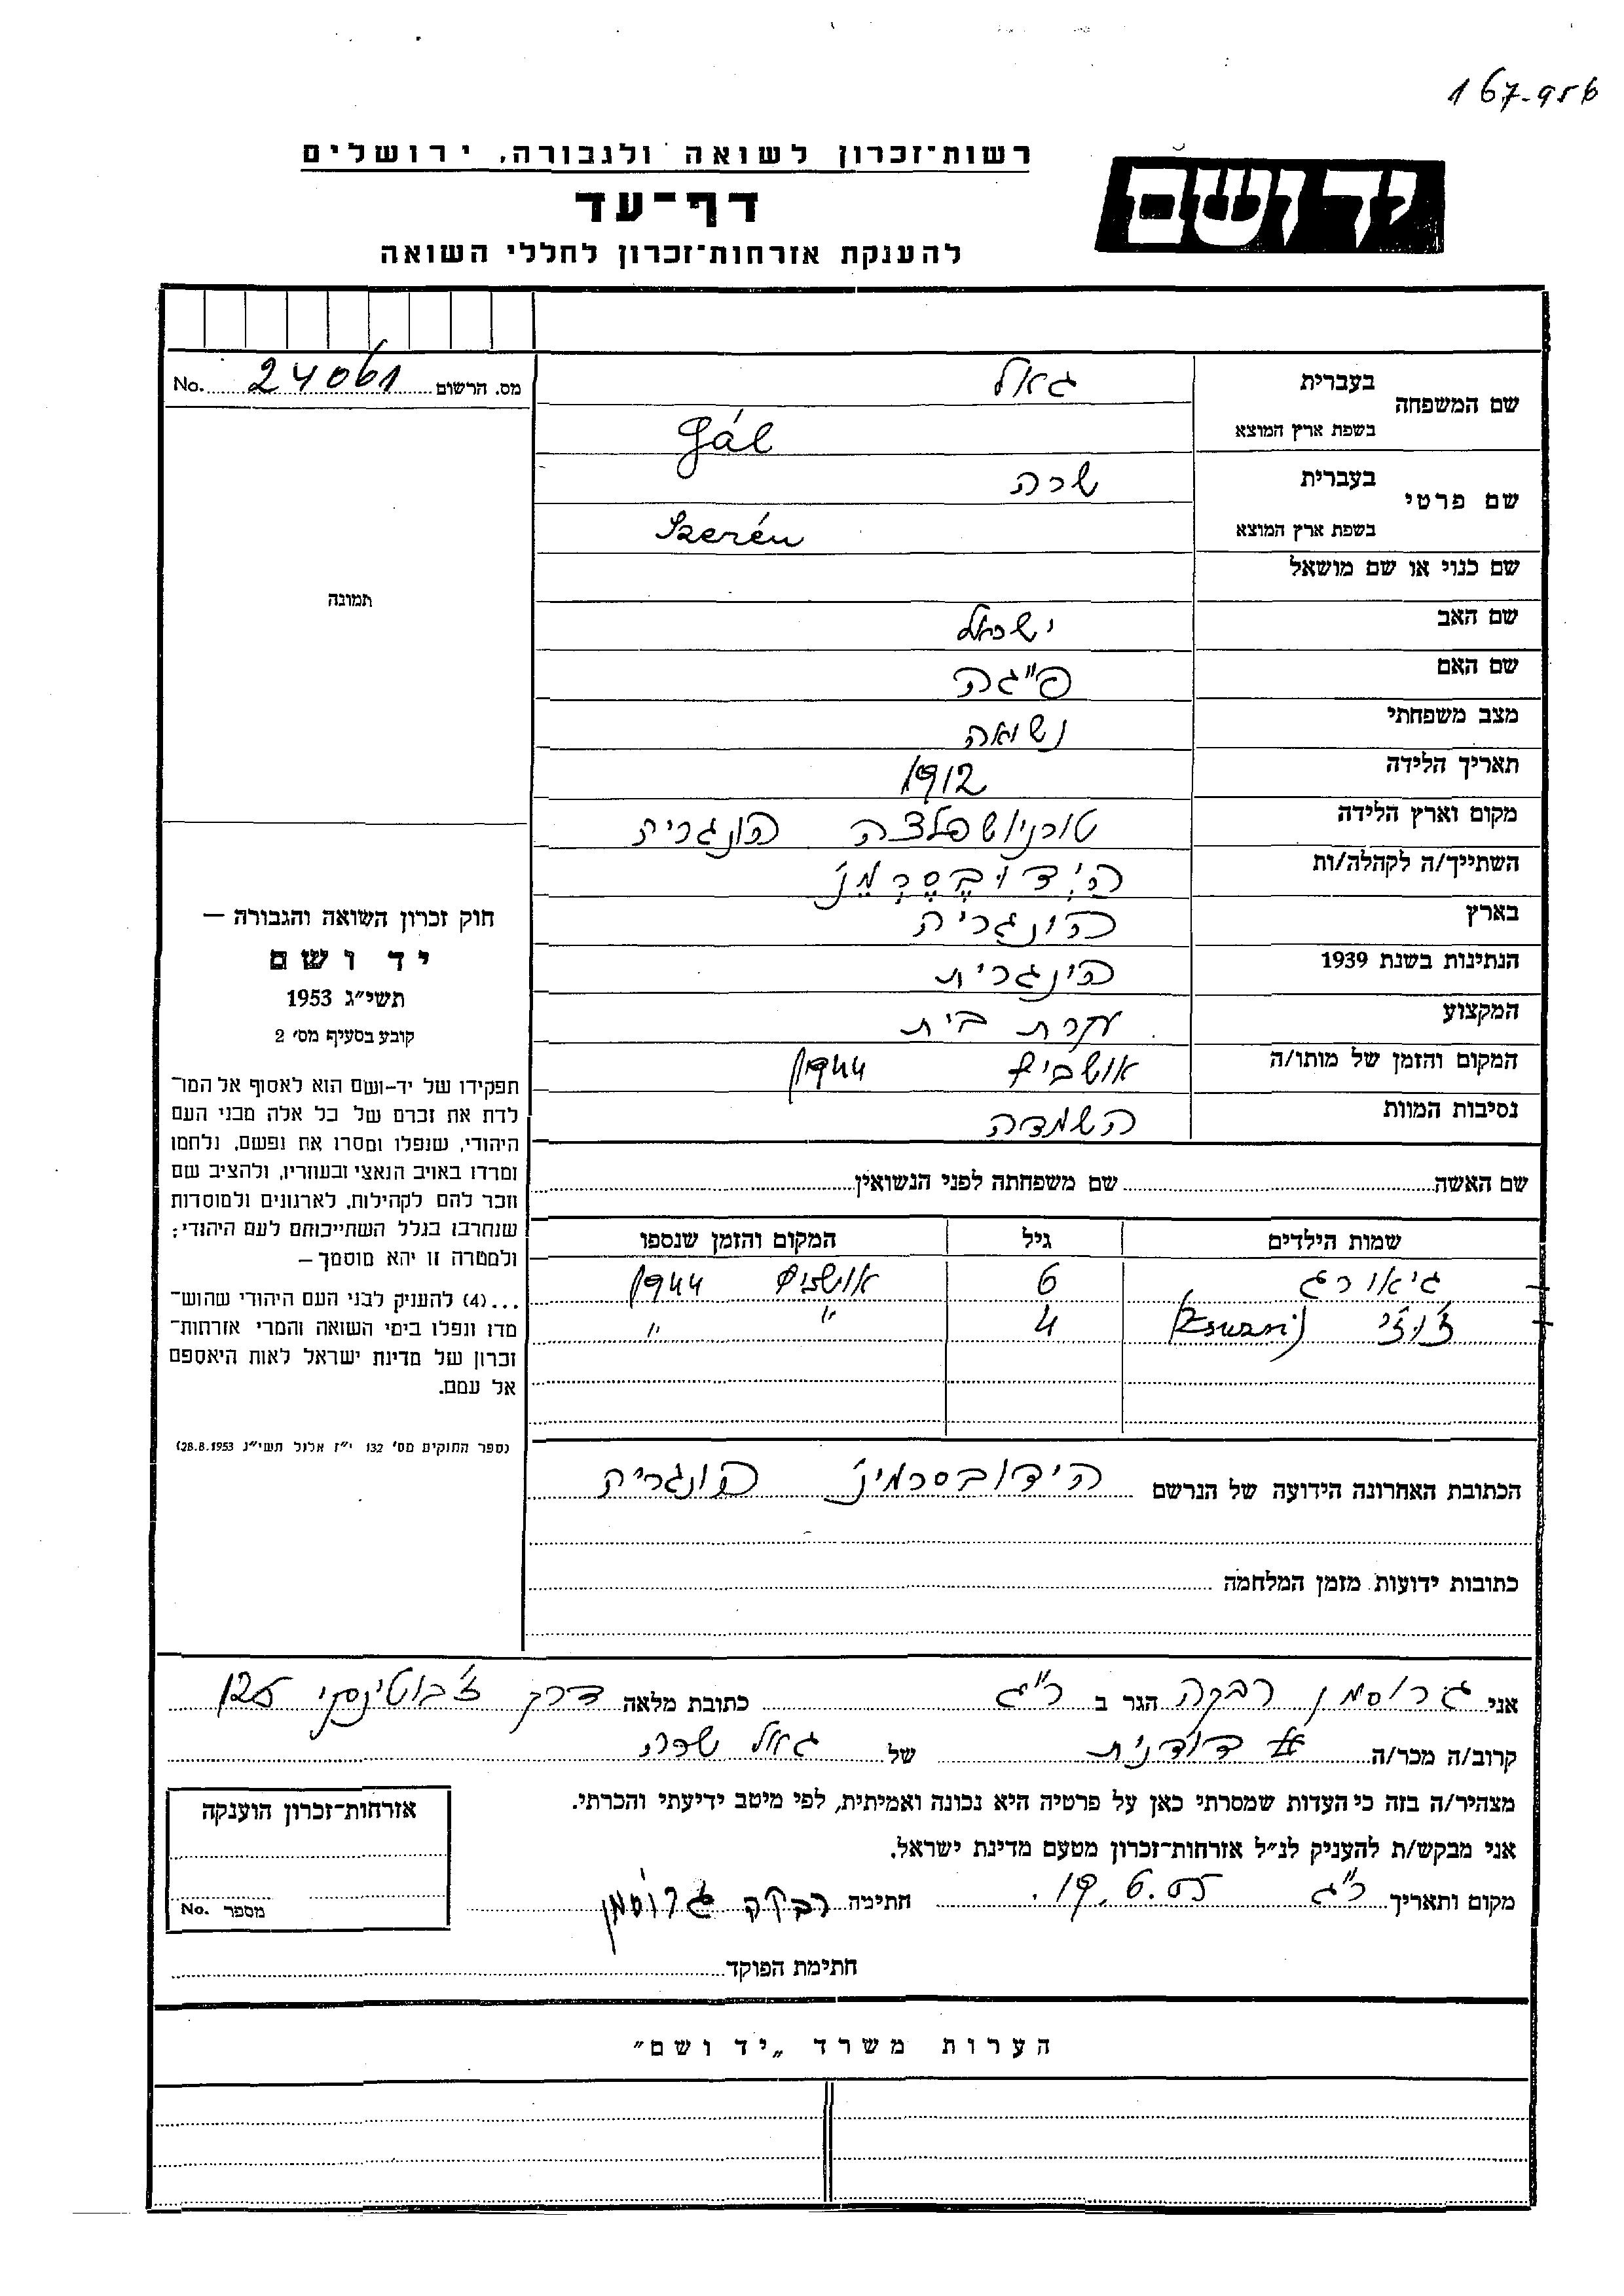 167-956
רשות־זכרון לשואה ולגבורה, ירושלים
יד ושם
דף־עד
להענקת אזרחות־זכרון לחללי השואה
No. 24061 מס. הרשום
שם המשפחה
בעברית גאל
בשפת ארץ המוצא Gál
שם פרטי
בעברית שרה
בשפת ארץ המוצא Szerén
שם כנוי או שם מושאל
שם האב ישראל
שם האם פייגה
מצב משפחתי נשואה
תאריך הלידה 1912
מקום וארץ הלידה טורניושפלצה הונגריה
השתייך/ה לקהלה/ות הידובסרמנ'
בארץ הונגריה
הנתינות בשנת 1939 הינגרית
המקצוע עקרת בית
המקום והזמן של מותו/ה אושביץ 1944
נסיבות המוות השמדה
שם האשה שם משפחתה לפני הנשואין
שמות הילדים גיל המקום והזמן שנספו
גיאורג 6 אושביץ 1944
ז'וז'י (Zsuzsi) 4 " "
הכתובת האחרונה הידועה של הנרשם הידובסרמינ' הונגריה
כתובות ידועות מזמן המלחמה
תמונה
חוק זכרון השואה והגבורה —
יד ושם
תשי״ג 1953
קובע בסעיף מס׳ 2
תפקידו של יד-ושם הוא לאסוף אל המו־
לדת את זכרם של כל אלה מבני העם
היהודי, שנפלו ומסרו את נפשם, נלחמו
ומרדו באויב הנאצי ובעוזריו, ולהציב שם
וזכר להם לקהילות, לארגונים ולמוסדות
שנחרבו בגלל השתייכותם לעם היהודי;
ולמטרה זו יהא מוסמך —
...(4) להעניק לבני העם היהודי שהוש־
מדו ונפלו בימי השואה והמרי אזרחות־
זכרון של מדינת ישראל לאות היאספם
אל עמם.
(ספר החוקים מס׳ 132 י״ז אלול תשי״ג 28.8.1953)
אני גרוסמן רבקה הגר ב ר"ג כתובת מלאה דרך ז'בוטינסקי 125
קרוב/ה מכר/ה דודנית של גאל שרה
מצהיר/ה בזה כי העדות שמסרתי כאן על פרטיה היא נכונה ואמיתית, לפי מיטב ידיעתי והכרתי.
אני מבקש/ת להעניק לנ״ל אזרחות־זכרון מטעם מדינת ישראל.
מקום ותאריך ר"ג 19.6.55 חתימה רבקה גרוסמן
חתימת הפוקד
אזרחות־זכרון הוענקה
מספר No.
הערות משרד „יד ושם״